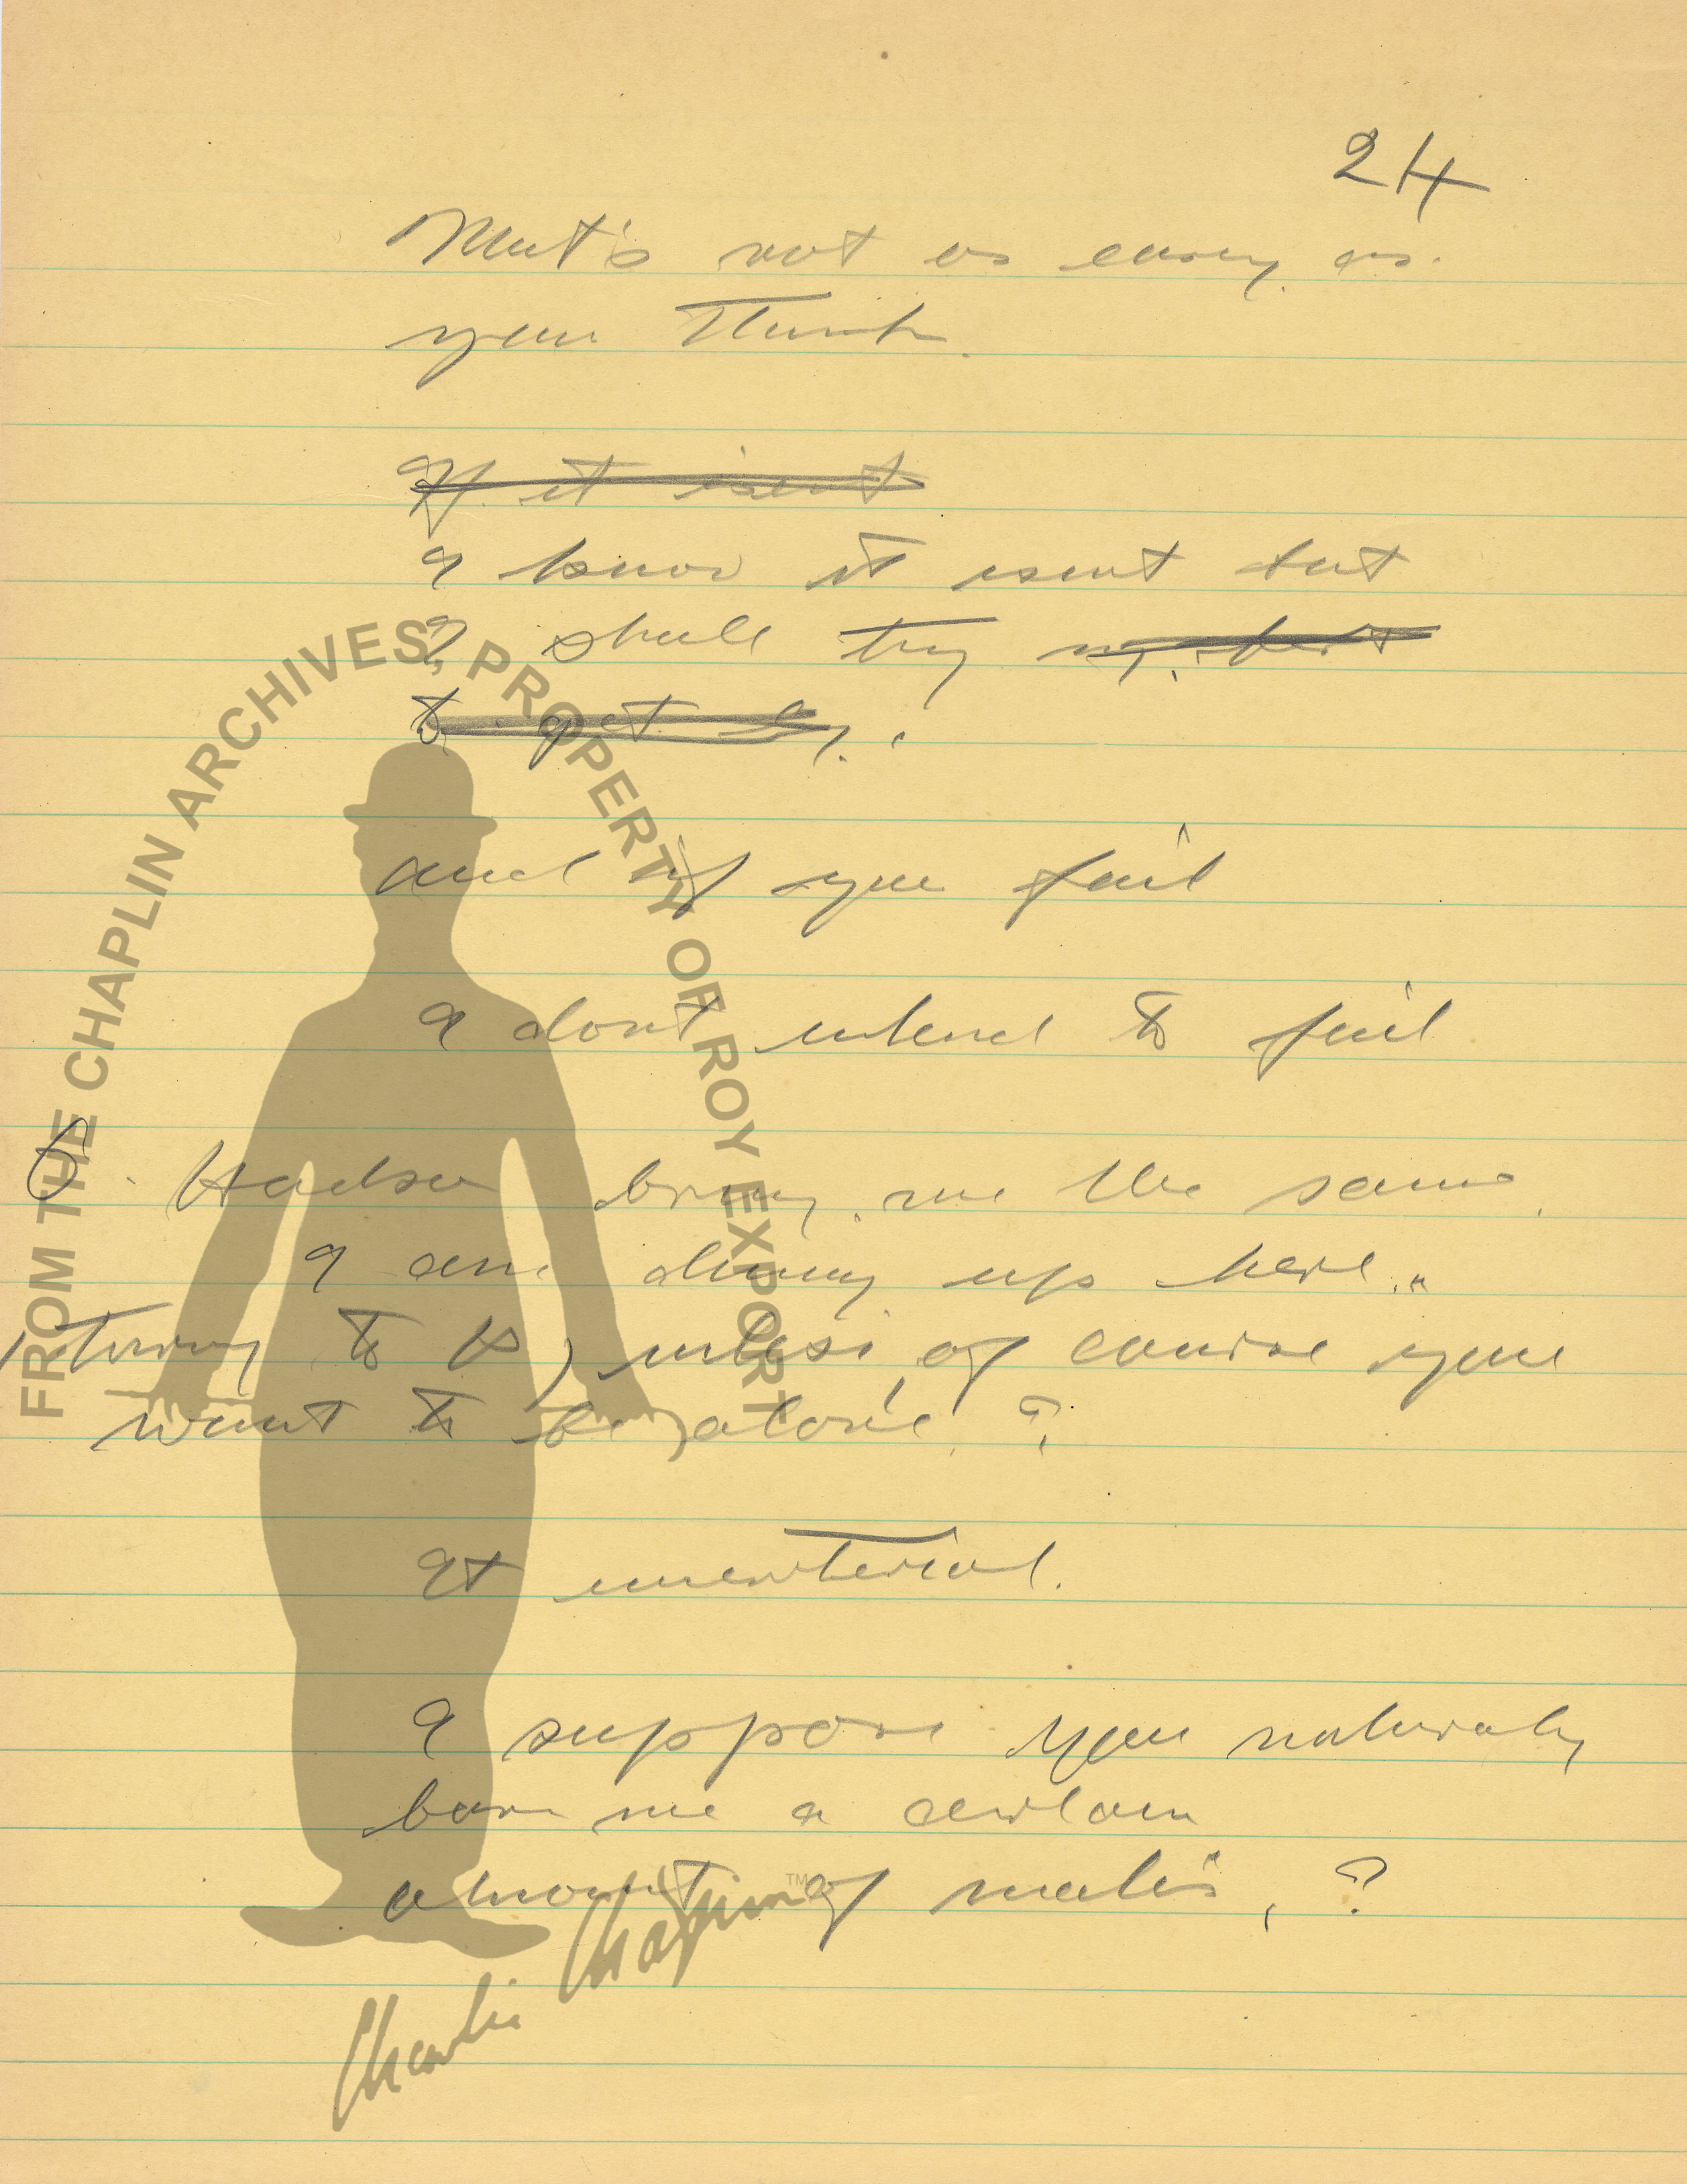 24
That's not as easy as
you think.
If it isent
I know it isent but
I shall try my best
to get by.
and if you fail
I dont intend to fail
Hudson bring me the same.
I am dining up here..
turning to K) unless, of course you
want to be alone ?
It imaterial.
I suppose you naturaly
bare me a certain
amount of malis, ?
FROM THE CHAPLIN ARCHIVES, PROPERTY OF ROY EXPORT
Charlie Chaplin TM